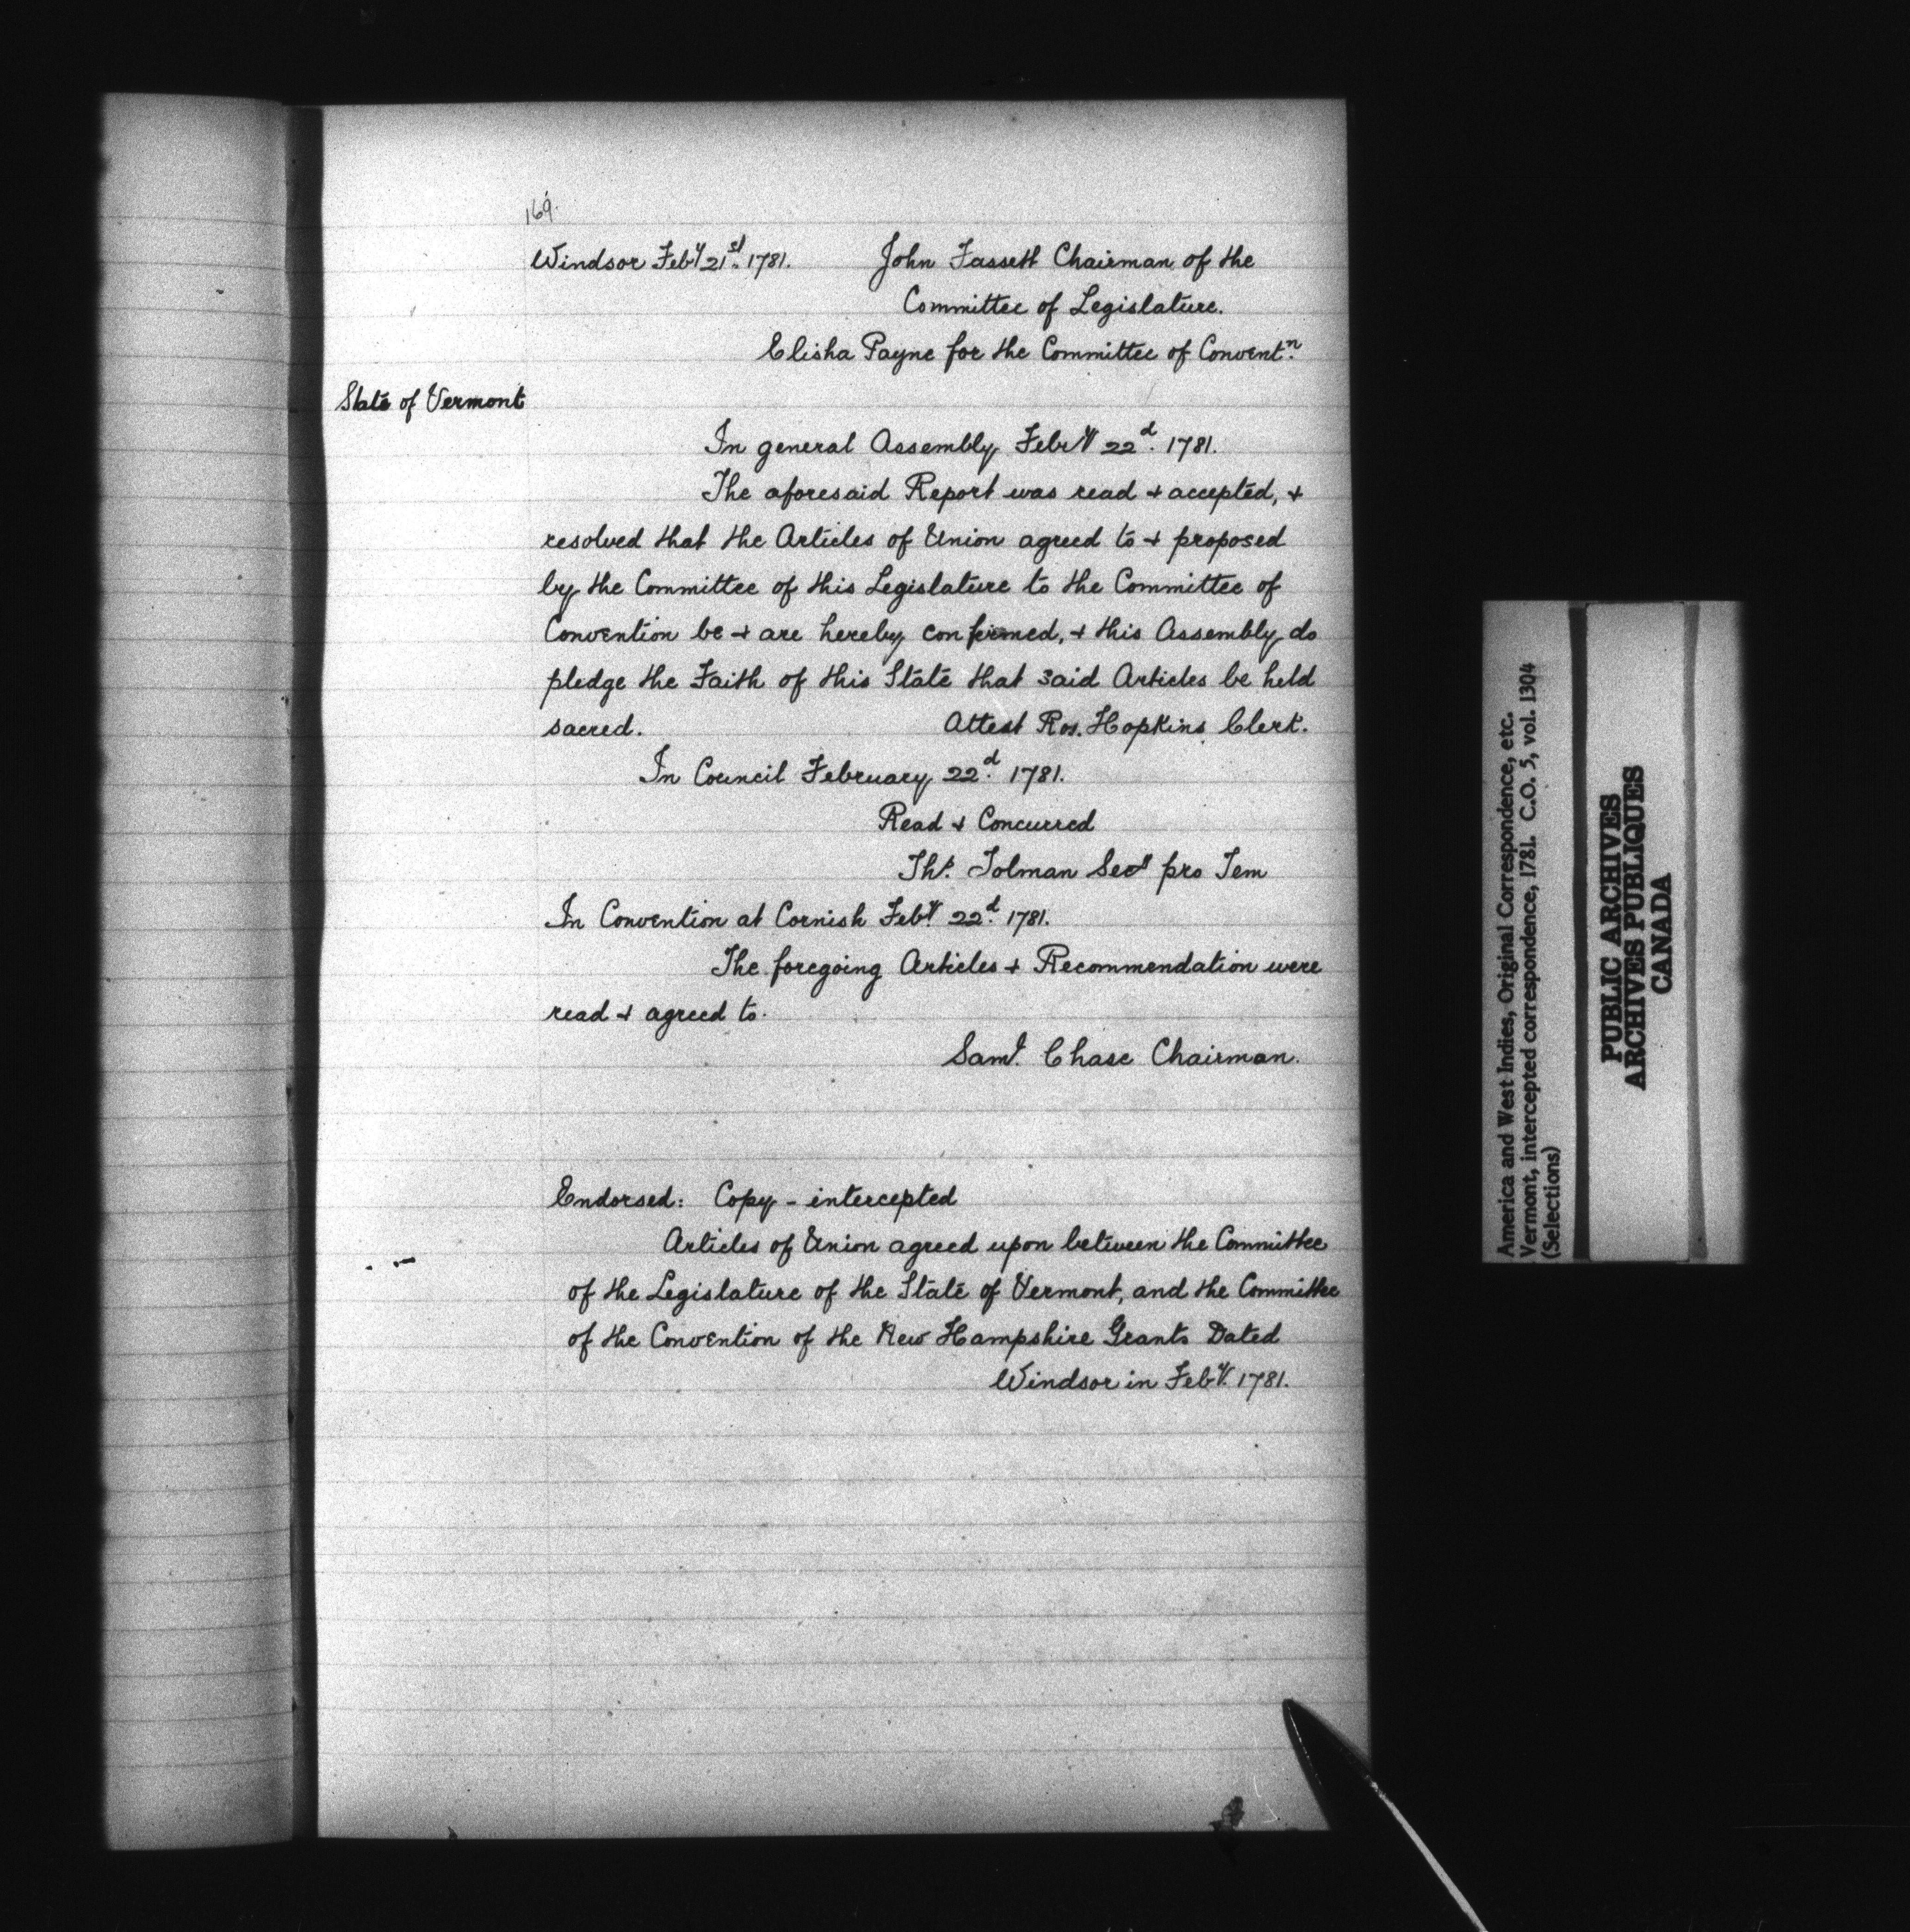 169.
Windsor Feby 21st. 1781. John Fassett Chairman of the
Committee of Legislature.
Elisha Payne for the Committee of Conventn.
State of Vermont
In general Assembly Febry 22d. 1781.
The aforesaid Report was read & accepted, &
resolved that the Articles of Union agreed to & proposed
by the Committee of this Legislature to the Committee of
Convention be & are hereby confirmed, & this Assembly do
pledge the Faith of this State that said Articles be held
sacred. Attest Ros. Hopkins Clerk.
In Council February 22d. 1781.
Read & Concurred
Ths. Tolman Secy pro Tem
In Convention at Cornish Feby. 22d. 1781.
The foregoing Articles & Recommendation were
read & agreed to.
Saml. Chase Chairman.
Endorsed: Copy - intercepted
Articles of Union agreed upon between the Committee
of the Legislature of the State of Vermont, and the Committee
of the Convention of the New Hampshire Grants Dated
Windsor in Feby. 1781.
America and West Indies, Original Correspondence, etc.
Vermont, intercepted correspondence, 1781. C.O. 5, vol. 1304
(Selections)
PUBLIC ARCHIVES
ARCHIVES PUBLIQUES
CANADA